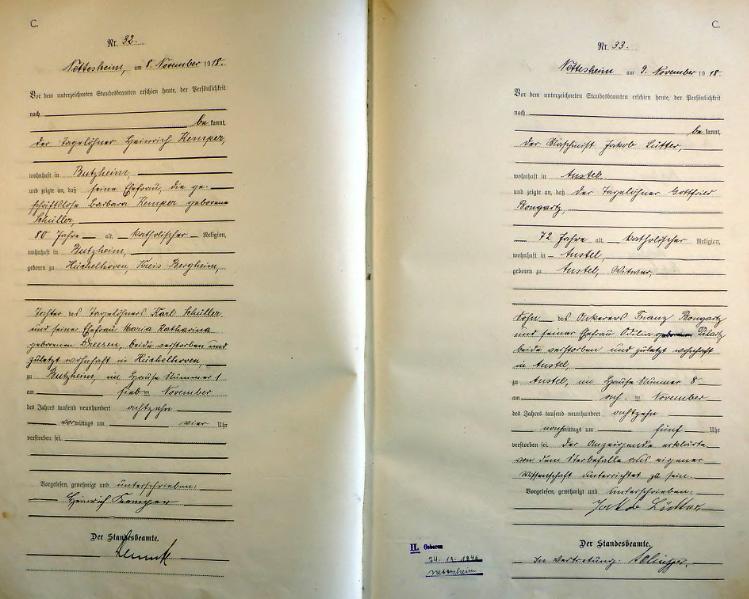 C.
Nr. 32.
Nettesheim, am 8. November 1918.
Vor dem unterzeichneten Standesbeamten erschien heute, der Persönlichkeit
nach
be kannt,
der Tagelöhner Heinrich Kemper,
wohnhaft in Butzheim,
und zeigte an, daß seine Ehefrau, die ge-
schäftslose Barbara Kemper geborene
Schüller,
80 Jahre alt, katholischer Religion,
wohnhaft in Butzheim,
geboren zu Hüchelhoven, Kreis Bergheim,
Tochter des Tagelöhners Karl Schüller
und seiner Ehefrau Maria Katharina
geborenen beide verstorben und
zuletzt wohnhaft in Hüchelhoven,
zu Butzheim, im Hause Nummer 1
am sieb ten November
des Jahres tausend neunhundert achtzehn
vormittags um vier Uhr
verstorben sei.
Vorgelesen, genehmigt und unterschrieben:
Heinrich Kemper
Der Standesbeamte.
C.
Nr. 33.
Nettesheim am 9. November 1918.
Vor dem unterzeichneten Standesbeamten erschien heute, der Persönlichkeit
nach
be kannt,
der Maschinist Jakob Lütter,
wohnhaft in Anstel,
und zeigte an, daß der Tagelöhner Gottfried
Bongartz,
72 Jahre alt, katholischer Religion,
wohnhaft in Anstel,
geboren zu Anstel, Witwer,
Sohn des Ackerers Franz Bongartz
und seiner Ehefrau
beide verstorben und zuletzt wohnhaft
in Anstel,
zu Anstel, im Hause Nummer 8
am ach ten November
des Jahres tausend neunhundert achtzehn
nachmittags um fünf Uhr
verstorben sei. Der Anzeigende erklärte
von dem Sterbefalle aus eigener
Wissenschaft unterrichtet zu sein.
Vorgelesen, genehmigt und unterschrieben:
Jakob Lütter
Der Standesbeamte.
In Vertretung:
II. Geboren
Nettesheim